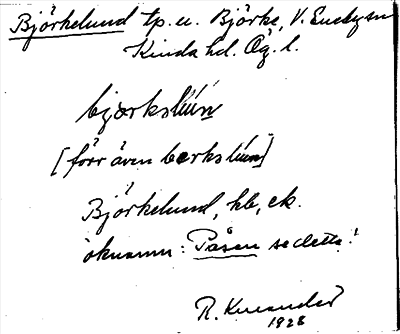 Björkelund tp. u. Björke, V. Eneby sn
Kinda hd. Ög. l.
bjœrkslúún
[förr även bœrkslúún]
Björkelund, kb, ek.
öknamn: Påsen se detta!
R.
1928